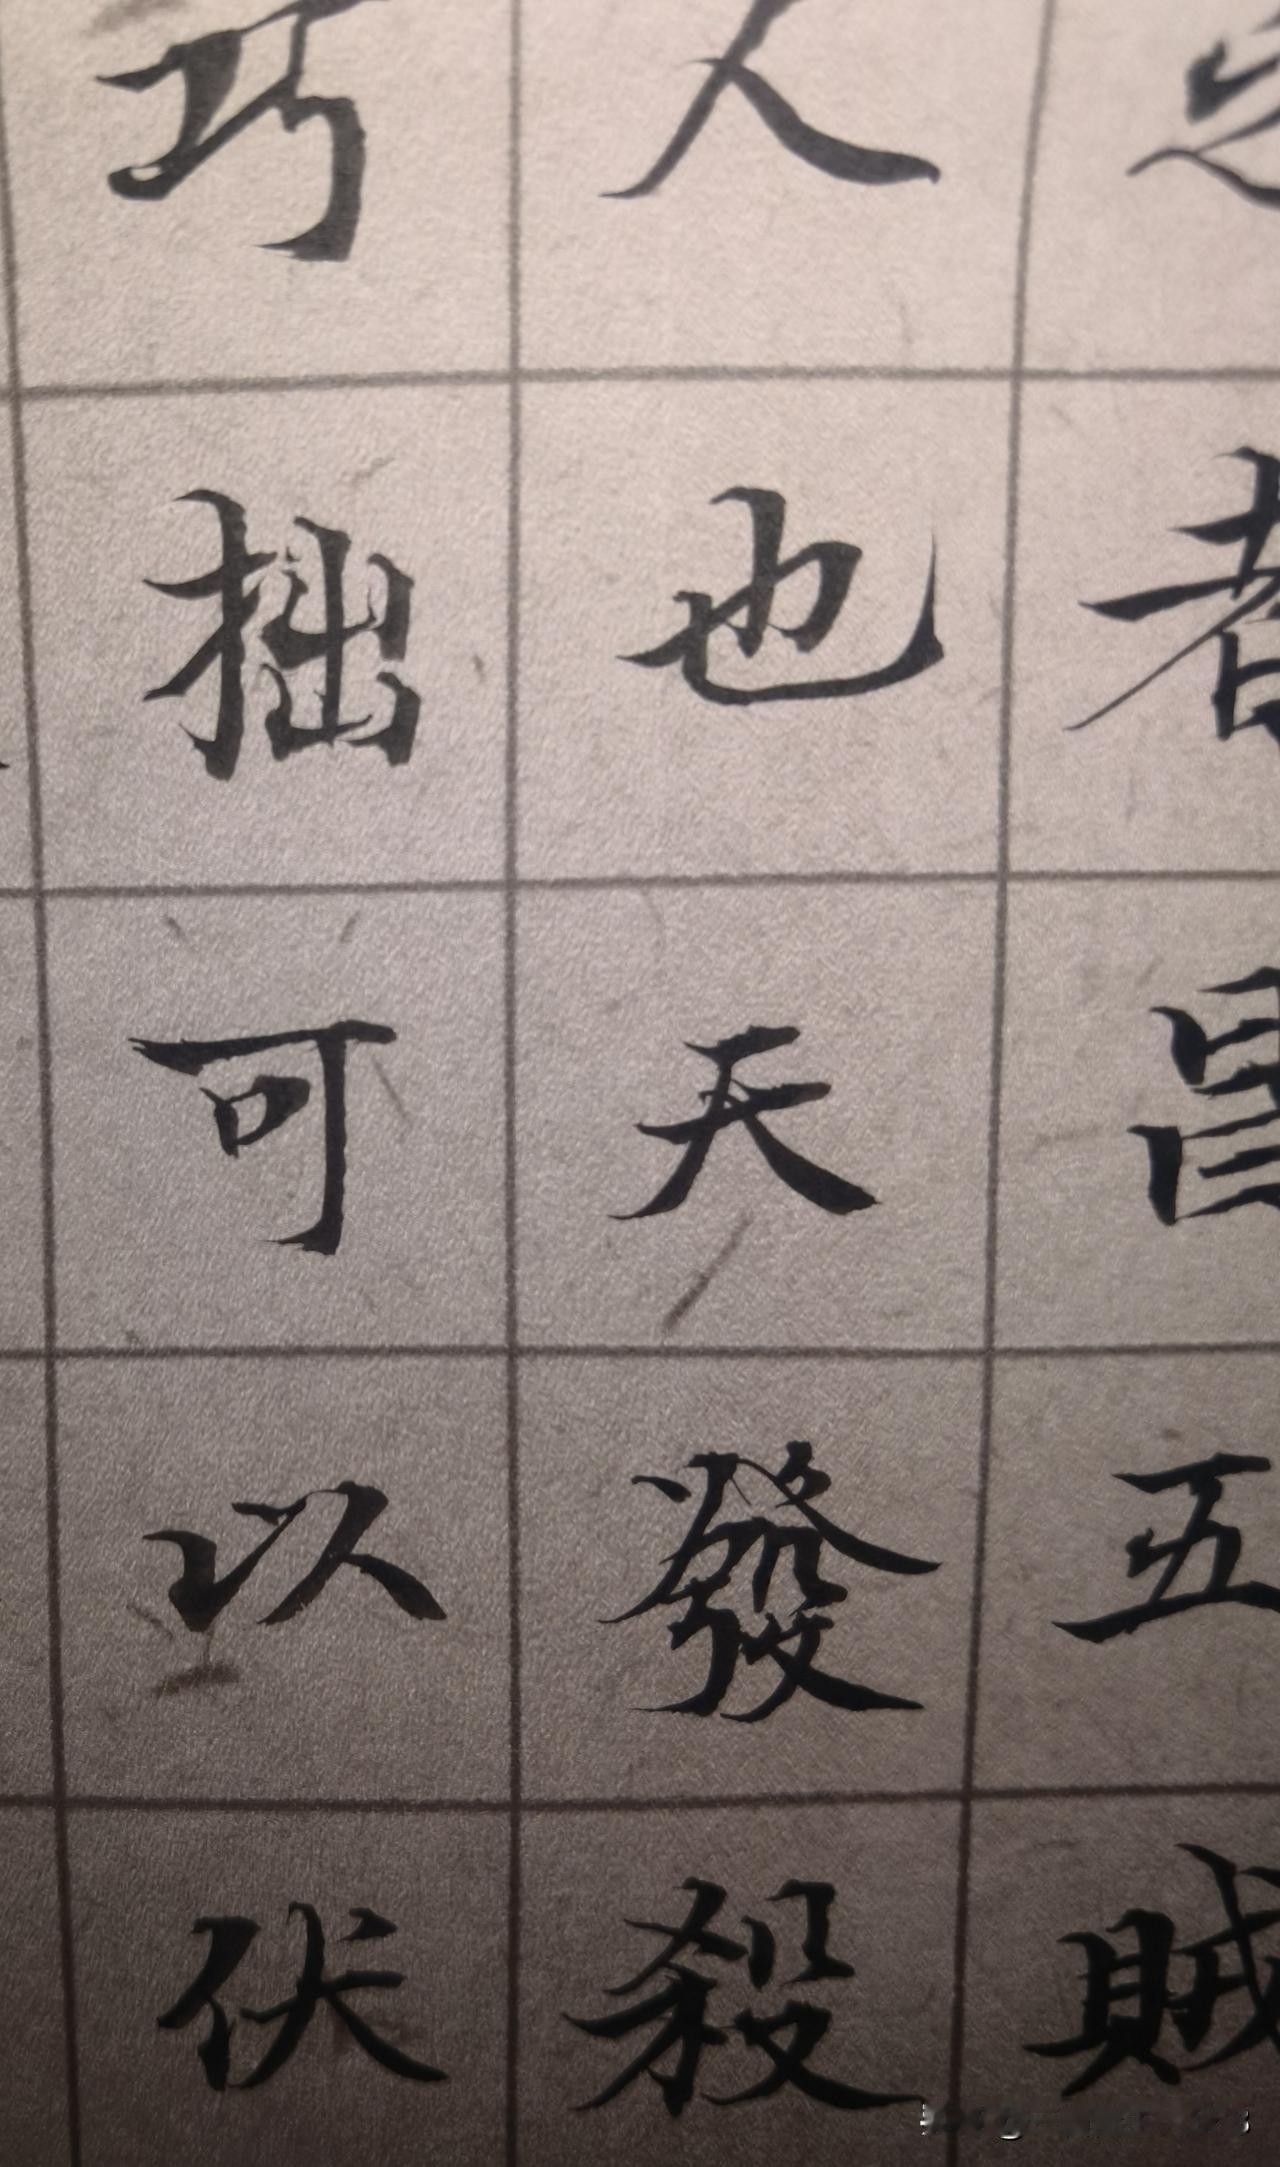 之者昌五賊
人也天發殺
巧拙可以伏